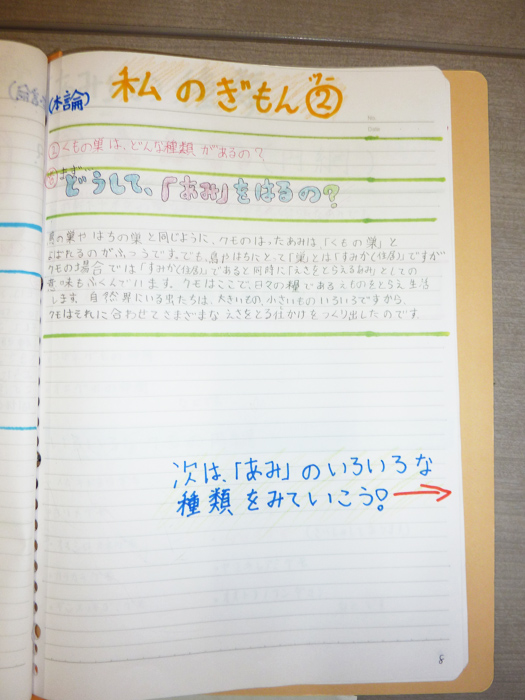 (本論)
私のぎもん②
No.
Date
②くもの巣は、どんな種類があるの?
まず…
どうして、「あみ」をはるの?
鳥の巣やはちの巣と同じように、クモのはったあみは「くもの巣」と
よばたるのがふつうです。でも、鳥やはちにとって「巣」とは「すみか(住居)」ですが
クモの場合では「すみか(住居)」であると同時に「えさをとらえるあみ」としての
意味もふくんでいます。クモはここで、日々の糧であるえものをとらえ生活
します。自然界にいる虫たちは、大きいもの、小さいものいろいろですから、
クモはそれに合わせてさまざまなえさをとる仕かけをつくり出したのです。
次は、「あみ」のいろいろな
種類をみていこう!→
8